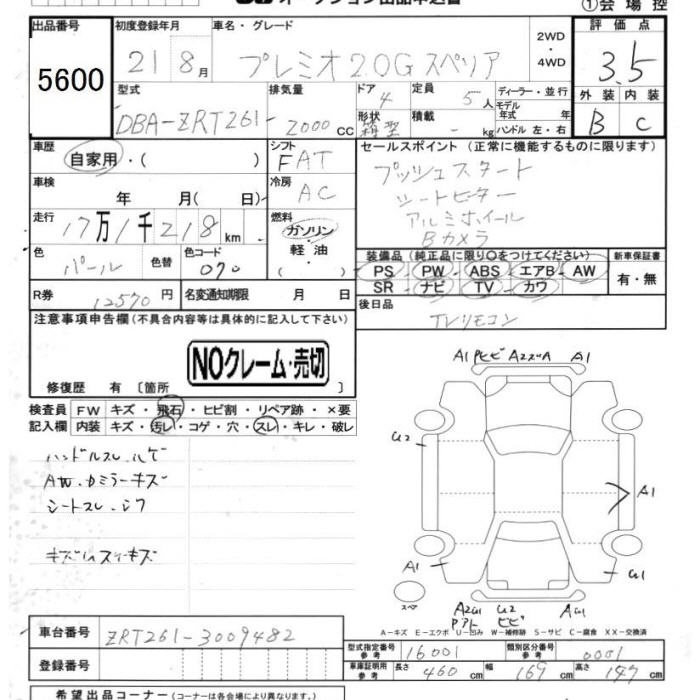 ①会場控
出品番号 5600
初度登録年月 21 8月
車名・グレード プレミオ 2.0G スペリア
2WD・4WD
評価点 3.5
型式 DBA-ZRT261
排気量 2000cc
ドア 4
形状 箱型
定員 5人
積載 - kg
ディーラー・並行
モデル年式 年
ハンドル 左・右
外装 B
内装 C
車歴 自家用・( )
シフト FAT
セールスポイント(正常に機能するものに限ります)
プッシュスタート
シートヒーター
アルミホイール
Bカメラ
車検 年 月(日)
冷房 AC
走行 17万1千218km
燃料 ガソリン・軽油・( )
色 パール
色替
色コード 070
装備品(純正品に限り○をつけてください)
PS PW ABS エアB AW
SR ナビ TV カワ
新車保証書 有・無
R券 12570円
名変通知期限 月 日
後日品 TVリモコン
注意事項申告欄(不具合内容等は具体的に記入して下さい)
NOクレーム・売切
修復歴 有〔箇所 〕
検査員記入欄
FW キズ・飛石・ヒビ割・リペア跡・×要
内装 キズ・汚レ・コゲ・穴・スレ・キレ・破レ
ハンドルスレ.ハゲ
AW.ドミラーキズ
シートスレ.シワ
A1 A1
U2
A1
A1 U1
スペア
U2
ヒビ
A-キズ E-エクボ U-凹み W-補修跡 S-サビ C-腐食 XX-交換済
車台番号 ZRT261-3009482
登録番号
型式指定番号 参考 16001
類別区分番号 参考 0001
車庫証明用 参考 長さ 460cm 幅 169cm 高さ 147cm
希望出品コーナー(コーナーは各会場により異なります。)